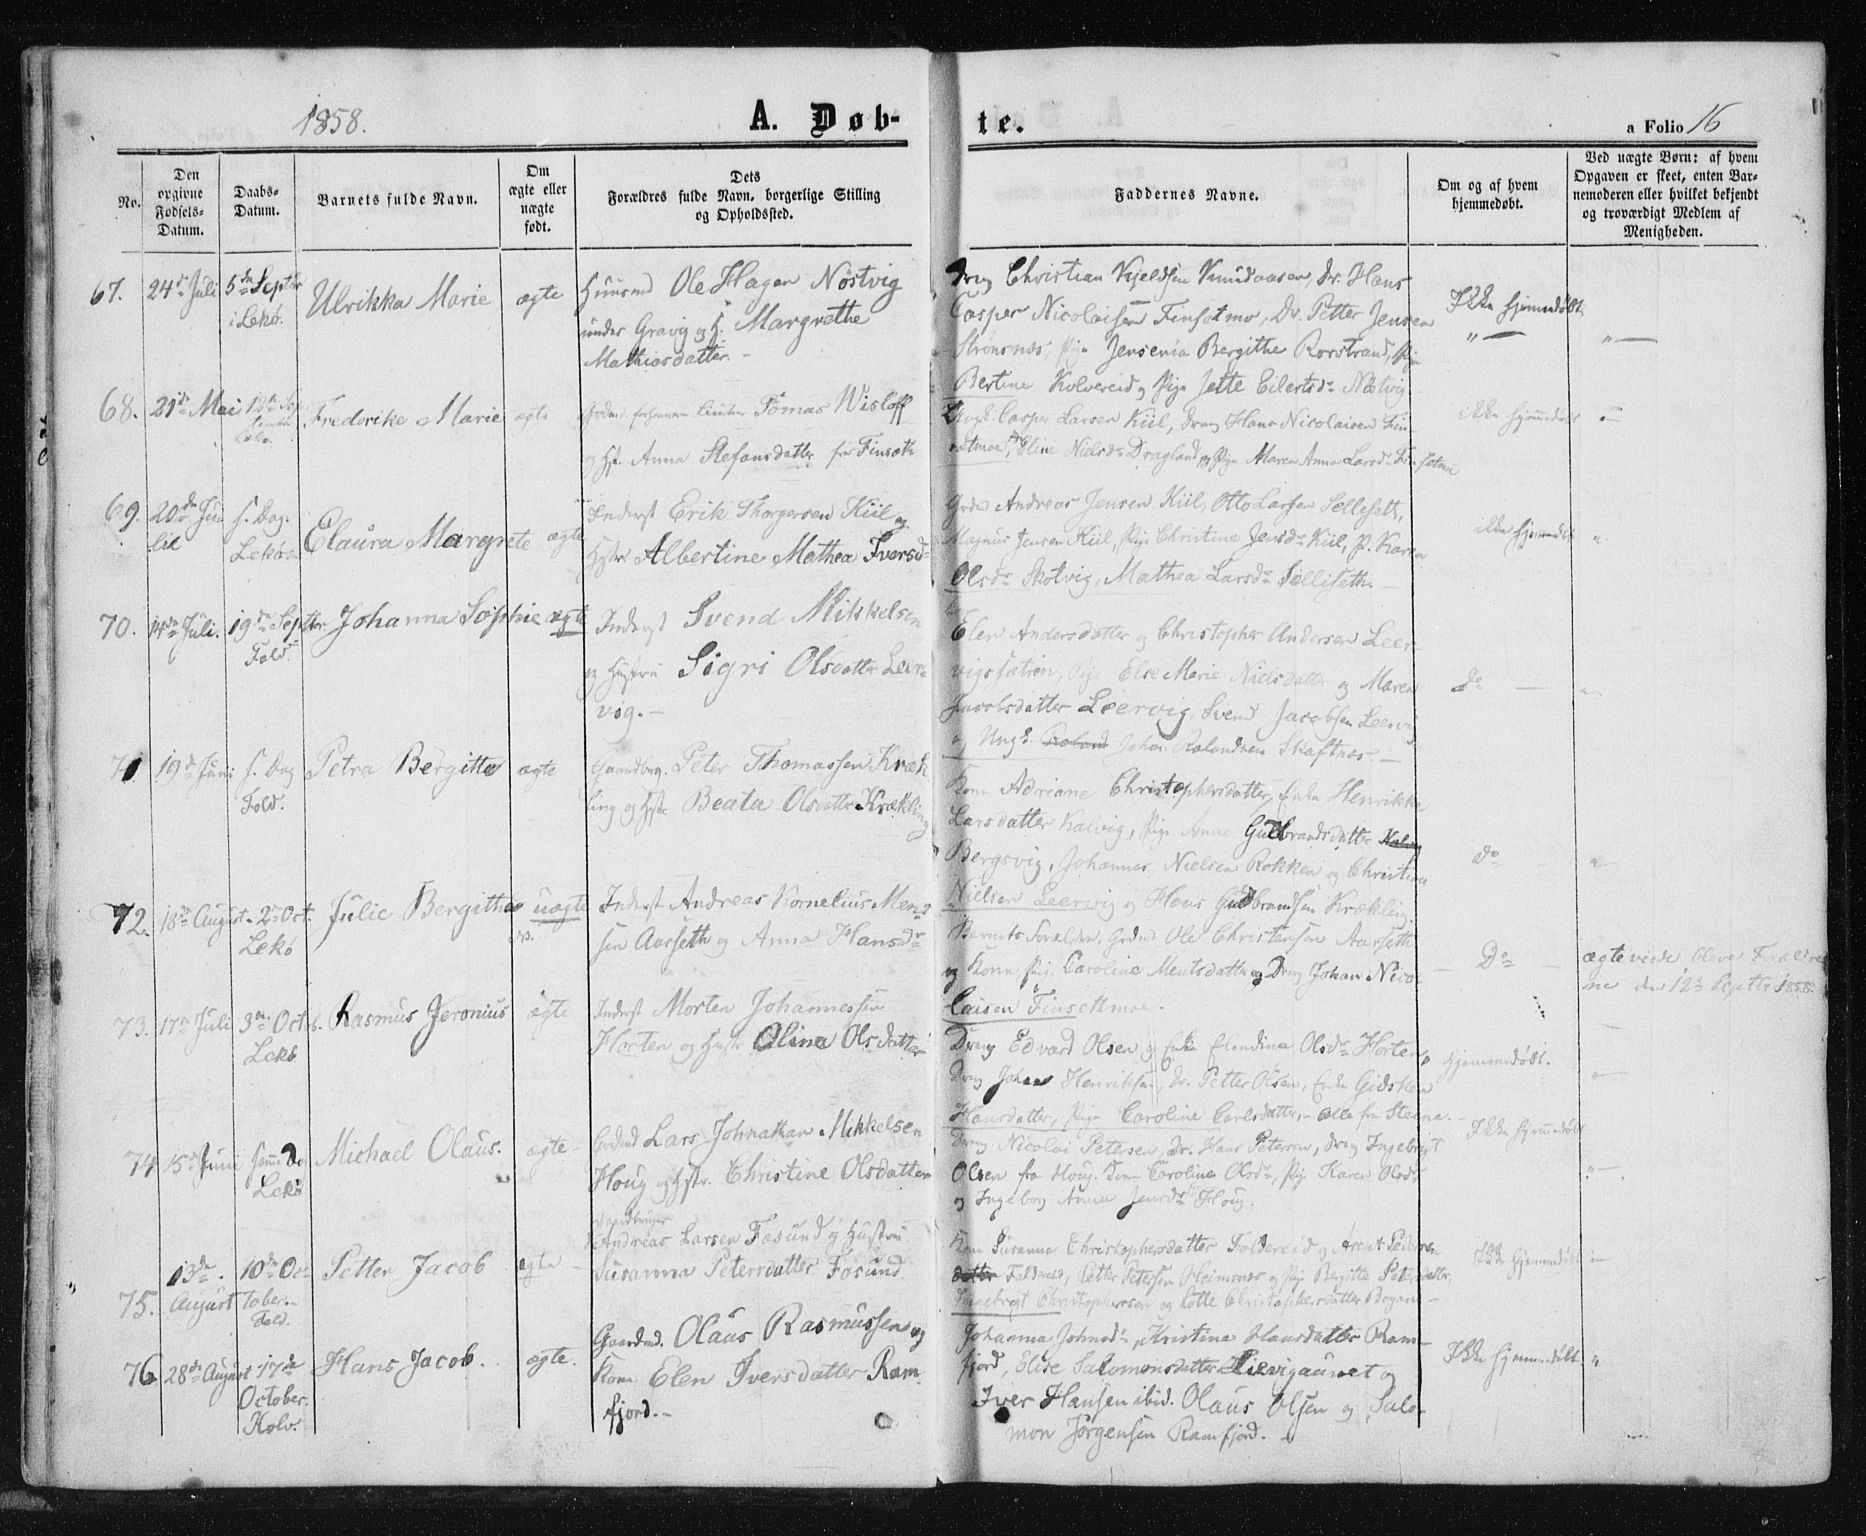 1858.
A. Døb-
te.
a Folio 16
No.
Den
opgivne
Fødsels-
Datum.
Daabs-
Datum.
Barnets fulde Navn.
Om
ægte eller
uægte
født.
Dets
Forældres fulde Navn, borgerlige Stilling
og Opholdssted.
Faddernes Navne.
Om og af hvem
hjemmedøbt.
Ved uægte Børn: af hvem
Opgaven er skeet, enten Bar-
nemoderen eller hvilket bekjendt
og troværdigt Medlem af
Menigheden.
67.
24de Juli
5te Septbr
i Lekø.
Ulrikka Marie
ægte
Huusmd Ole Hagen Nöstvig
under Gravig og H. Margrethe
Mathiasdatter. -
Dreng Christian Kjeldsen Knudaasen, Dr. Hans
Casper Nicolaisen Finsetmo, Dr. Petter Jensen
Strönsnes, Pige Jensenia Bergithe Rorstrand, Pige
Bertine Kolvereid og Pige Jette Eilertsdr Nöstvig
Ikke hjemmedøbt
68.
21de Mai
12te Sep
tember
Lekø.
Frederike Marie
ægte
Tomas Wisløff
og Hst. Anna Stefansdatter fra Finseth
Casper Larsen Kiil, Dreng Hans Nicolaisen Fin-
setmoe, Eline Nielsdr Dragland og Pige Maren Anna Larsdr Finsetmo
ikke hjemmedøbt
69.
20de Ju-
lii
s. Dag.
Lekøe
Elaura Margrete
ægte
Inderst Erik Thorgersen Kiil og
Hstr Albertine Mathea Iversdr
Grdm Andreas Jensen Kiil, Otto Larsen Selleseth,
Magnus Jensen Kiil, Pige Christine Jensdr Kiil, P. Karen
Olsdr Skotvig, Mathea Larsdr Sellisetk. -
ikke hjemmedøbt
70.
14de Juli.
19de Septbr
Fold.
Johanna Sophie
ægte
Inderst Svend Mikkelsen
og Hustru Sigri Olsdatter Leer-
vig. -
Elen Andersdatter og Christopher Andersen Leer-
vigssætren, Pige Else Marie Nielsdatter og Maren
Jacobsdatter Leervig, Svend Jacobsen Leervig
og Ungk. Roland Johan Rolandsen Skaftnes. -
Do
71
19de Juni
s. Dag
Fold.
Petra Bergitte
ægte
Gaardbrg. Peter Thomassen Kræk-
ling og Hstr Beata Olsdatter Krækling
Kone Adriane Christophersdatter, Enke Henrikke
Larsdatter Kalvig, Pige Anne Gudbrandsdatter Kalvig
Bergsvig, Johannes Nielsen Rokken og Christian
Nielsen Leervig og Hans Gudbrandsen Krækling.
do
72.
18de August.
2de Oct.
Lekö
Julie Bergitha
uægte
Inderst Andreas Kornelius Ment-
sen Aarseth og Anna Hansdr
Barnets Forældre, Grdmd Ole Christensen Aarseth
og Kone, Pige Caroline Mentsdatter og Dreng Johan Nico-
laisen Finsethmoe.
Do
ægteviede bleve Forældre-
ne den 12te Septbr 1858
73.
17de Juli
3die Octob.
Lekö
Rasmus Jeronius
ægte
Inderst Morten Johannessen
Horten og Hustr Olina Olsdatter
Dreng Edvard Olsen og Enke Elendina Olsdr Horten
Dreng Johan Henriksen, Dr. Petter Olsen, Enke Gidsken
Hansdatter, Pige Caroline Carlsdatter, - alle fra Steene.
hjemmedøbt.
74
15de Juni
samme Dag
Lekö
Michael Olaus.
ægte
Grdmd Lars Johnathan Mikkelsen
Houg og Hstr. Christine Olsdatter
Dreng Nicolai Petersen, Dr. Hans Petersen, Dreng Ingebrigt
Olsen fra Houg. Kone Caroline Olsdr, Pige Karen Olsdr
og Ingeborg Anna Jensdr Houg.
Ikke hjemmedøbt
75.
13de
August
10de Oc-
tober.
Fold.
Petter Jacob
ægte
Gaardbruger
Andreas Larsen Fosund og Hustru
Susanna Petersdatter Fosund
Kone Susanna Christophersdatter Foldereid og Arent Pedersen
datter Foldereid, Petter Petersen Heimsnes og Pige Bergitte Petersdatter,
Ingebrigt Christophersen og Lotte Christophersdatter Bogen -
Ikke hjemmedøbt
76
28de August
17de
October.
Kolv.
Hans Jacob.
ægte.
Gaardmd. Olaus Rasmussen og
Kone Elen Iversdatter Ram-
fjord. -
Johanna Johnsdr, Kristina Hansdatter Ram-
fjord, Elise Salomonsdatter Lievigaunet og
Iver Hansen ibid. Olaus Olsen og Salo-
mon Jörgensen Ramfjord. -
Ikke hjemmedøbt